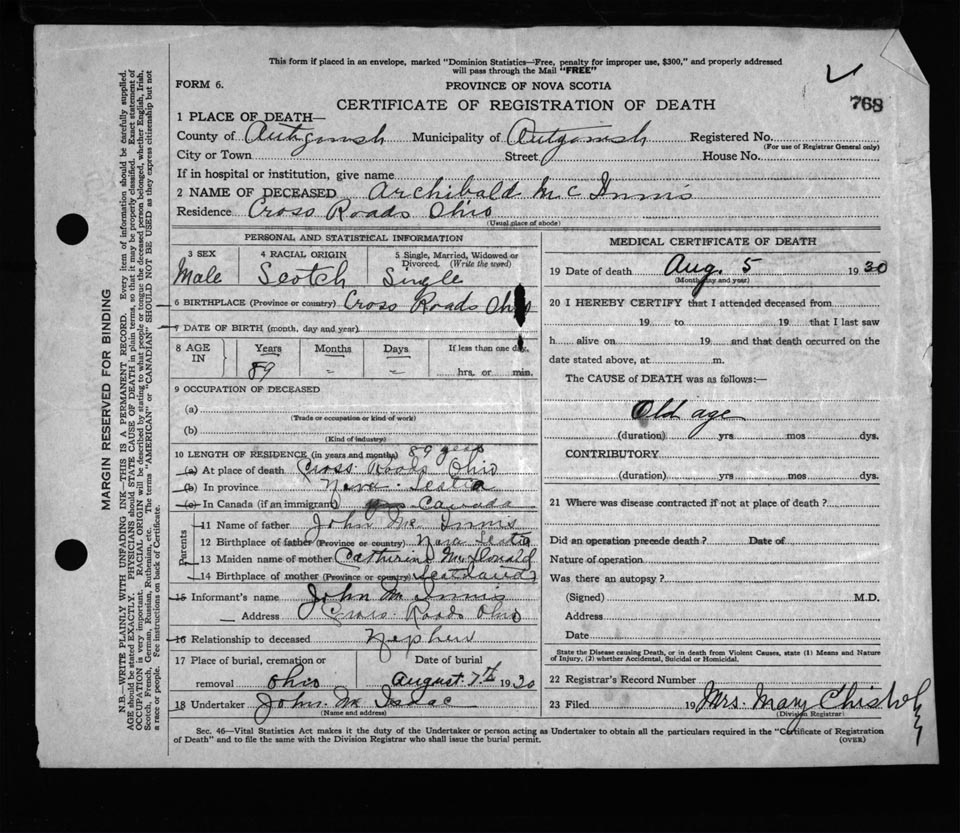 This form if placed in an envelope, marked "Dominion Statistics—Free, penalty for improper use, $300," and properly addressed
will pass through the Mail "FREE"
FORM 6.
PROVINCE OF NOVA SCOTIA
768
CERTIFICATE OF REGISTRATION OF DEATH
1 PLACE OF DEATH—
County of Antigonish Municipality of Antigonish Registered No.
(For use of Registrar General only)
City or Town Street House No.
If in hospital or institution, give name
2 NAME OF DECEASED Archibald McInnis
Residence Cross Roads Ohio
(Usual place of abode)
PERSONAL AND STATISTICAL INFORMATION
3 SEX 4 RACIAL ORIGIN 5 Single, Married, Widowed or
Divorced. (Write the word)
Male Scotch Single
6 BIRTHPLACE (Province or country) Cross Roads Ohio
7 DATE OF BIRTH (month, day and year)
8 AGE IN Years Months Days If less than one day,
89 - - hrs. or min.
9 OCCUPATION OF DECEASED
(a)
(Trade or occupation or kind of work)
(b)
(Kind of industry)
10 LENGTH OF RESIDENCE (in years and months) 89 years
(a) At place of death Cross Roads Ohio
(b) In province Nova Scotia
(c) In Canada (if an immigrant) Canada
Parents
11 Name of father John McInnis
12 Birthplace of father (Province or country) Nova Scotia
13 Maiden name of mother Catherine McDonald
14 Birthplace of mother (Province or country) Scotland
15 Informant's name John McInnis
Address Cross Roads Ohio
16 Relationship to deceased Nephew
17 Place of burial, cremation or Date of burial
removal Ohio August 7th 1930
18 Undertaker John McIsaac
(Name and address)
MEDICAL CERTIFICATE OF DEATH
19 Date of death Aug. 5 1930
(Month, day and year)
20 I HEREBY CERTIFY that I attended deceased from
19 to 19 that I last saw
h alive on 19 and that death occurred on the
date stated above, at m.
The CAUSE of DEATH was as follows:—
Old age
(duration) yrs mos dys.
CONTRIBUTORY
(duration) yrs mos dys.
21 Where was disease contracted if not at place of death?
Did an operation precede death? Date of
Nature of operation
Was there an autopsy?
(Signed) M.D.
Address
Date
State the Disease causing Death, or in death from Violent Causes, state (1) Means and Nature
of Injury, (2) whether Accidental, Suicidal or Homicidal.
22 Registrar's Record Number
23 Filed 19 Mrs. Mary Chisholm
(Division Registrar)
Sec. 46—Vital Statistics Act makes it the duty of the Undertaker or person acting as Undertaker to obtain all the particulars required in the "Certificate of Registration
of Death" and to file the same with the Division Registrar who shall issue the burial permit.
(OVER)
MARGIN RESERVED FOR BINDING
N.B.—WRITE PLAINLY WITH UNFADING INK—THIS IS A PERMANENT RECORD. Every item of information should be carefully supplied.
AGE should be stated EXACTLY. PHYSICIANS should STATE CAUSE OF DEATH in plain terms, so that it may be properly classified. Exact statement of
OCCUPATION is very important. RACIAL ORIGIN will be described by stating to what people or tongue the deceased person belonged, whether English, Irish,
Scotch, French, German, Russian, Ruthenian, etc. The terms "AMERICAN" or "CANADIAN" SHOULD NOT BE USED as they express citizenship but not
a race or people. See instructions on back of Certificate.